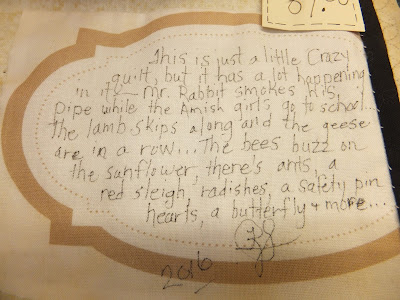 This is just a little Crazy
quilt, but it has a lot happening
in it — Mr. Rabbit smokes His
pipe while the Amish girls go to school...
the lamb skips along and the geese
are in a row... The bees buzz on
the sunflower, there's ants, a
red sleigh radishes, a safety pin
hearts, a butterfly + more...
2016